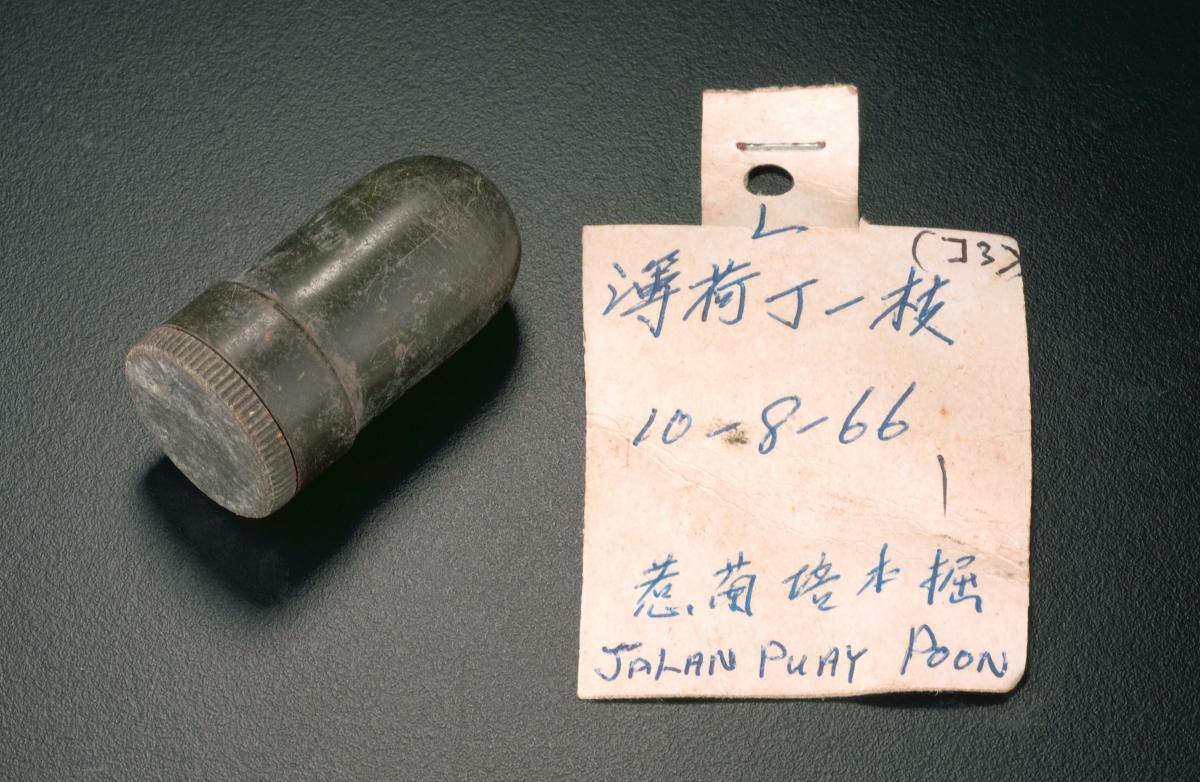 L
(コ3)
薄荷丁一枝
10-8-66
惹蘭培本掘
JALAN PUAY POON